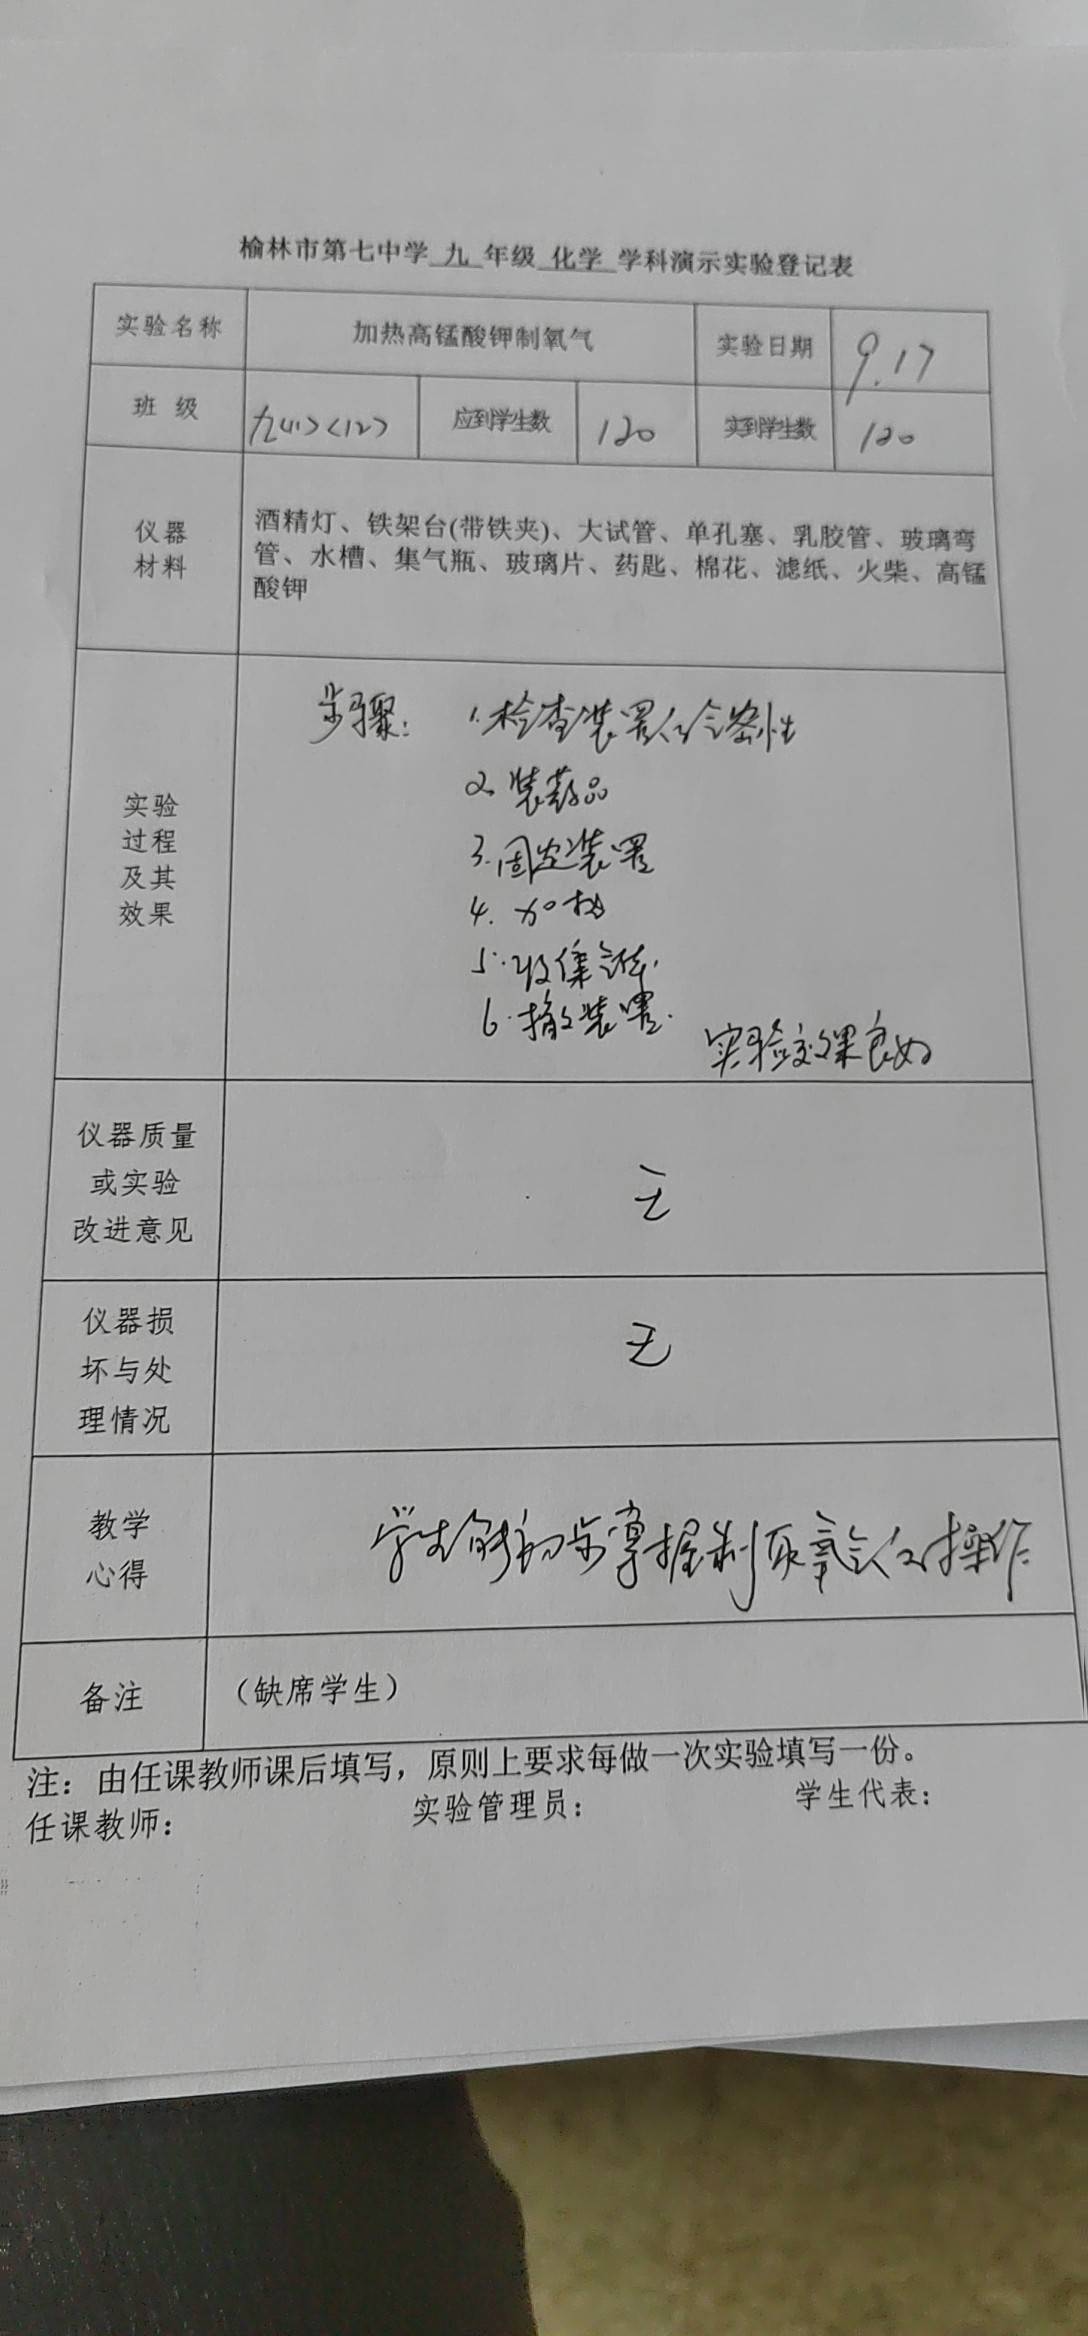 榆林市第七中学 九 年级 化学 学科演示实验登记表
实验名称 加热高锰酸钾制氧气 实验日期 9.17
班 级 九<11><12> 应到学生数 120 实到学生数 120
仪器
材料
酒精灯、铁架台(带铁夹)、大试管、单孔塞、乳胶管、玻璃弯
管、水槽、集气瓶、玻璃片、药匙、棉花、滤纸、火柴、高锰
酸钾
实验
过程
及其
效果
步骤: 1.检查装置的气密性
2.装药品
3.固定装置
4.加热
5.收集气体.
6.撤装置.
实验效果良好
仪器质量
或实验
改进意见
无
仪器损
坏与处
理情况
无
教学
心得
学生能初步掌握制取氧气的操作
备注 (缺席学生)
注:由任课教师课后填写,原则上要求每做一次实验填写一份。
任课教师: 实验管理员: 学生代表: